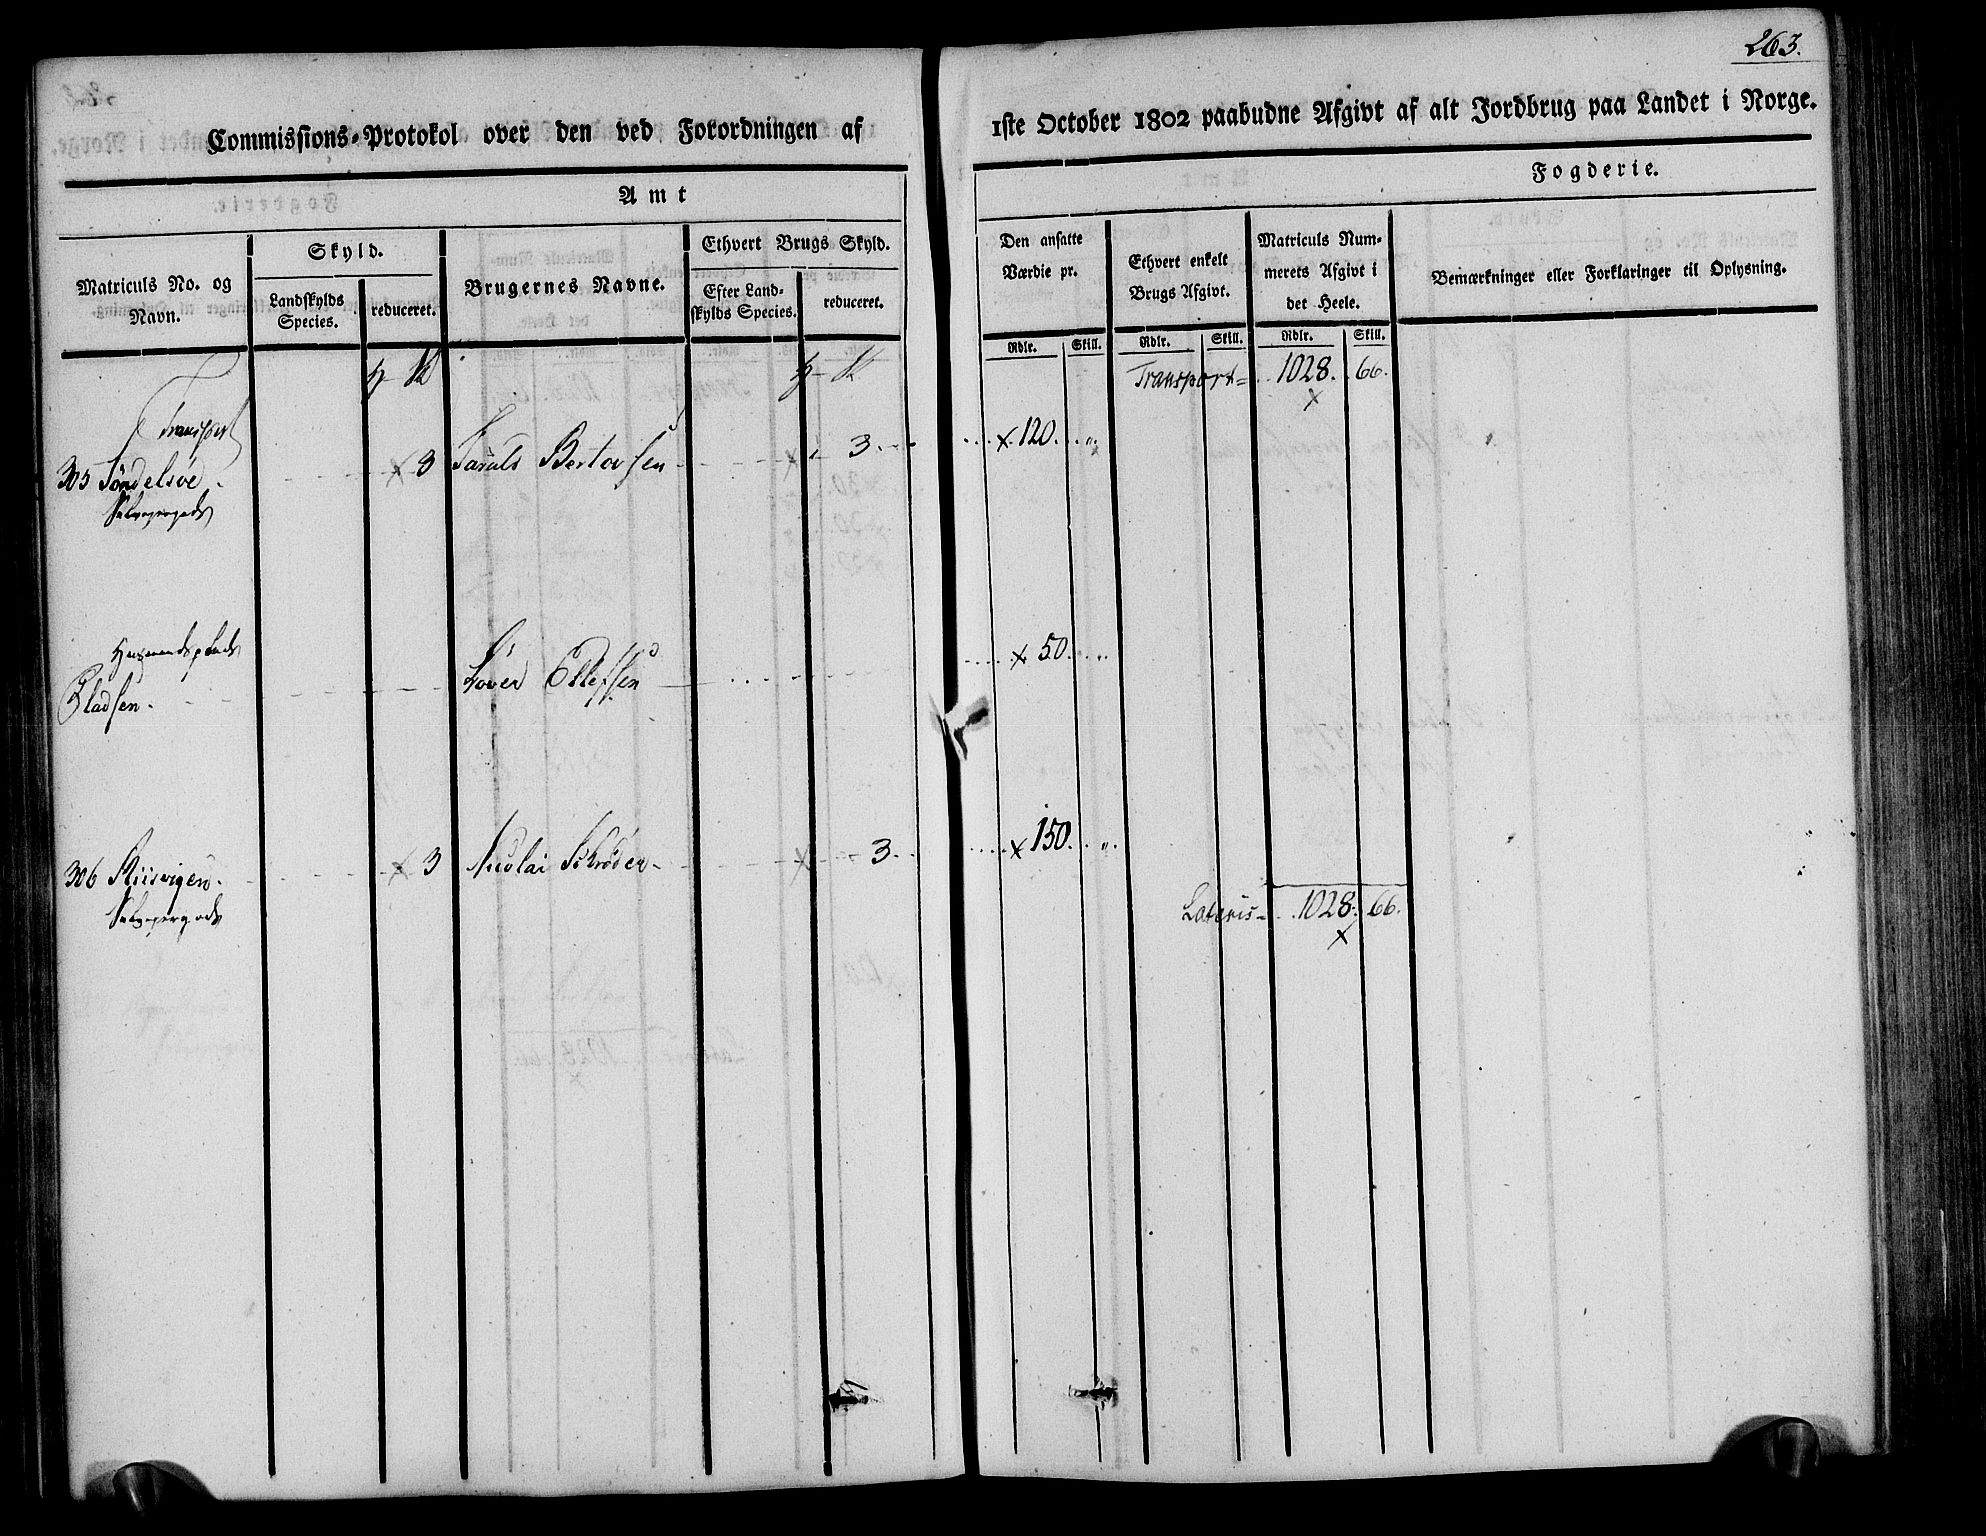 263.
Commissions-Protokol over den ved Forordningen af 1ste October 1802 paabudne Afgivt af alt Jordbrug paa Landet i Norge.
Amt
Fogderie.
Matriculs No. og Navn.
Skyld.
Landskylds Species.
reduceret.
Brugernes Navne.
Ethvert Brugs Skyld.
Efter Landskylds Species.
reduceret.
Den ansatte Værdie pr.
Rdlr. Skill.
Ethvert enkelt Brugs Afgivt.
Rdlr. Skill.
Matriculs Nummerets Afgivt i det Heele.
Rdlr. Skill.
Bemærkninger eller Forklaringer til Oplysning.
Transport
Transport 1028. 66.
305 Söndelsöe 3 Taralt Bertovsen 3. 120. "
Selveyergods
Huusmands plads
Pladsen. Söver Ellefsen 50. "
306 Riisvigen 3 Nicolai Schrøder 3. 150. "
Selveyergods
Lateris 1028. 66.